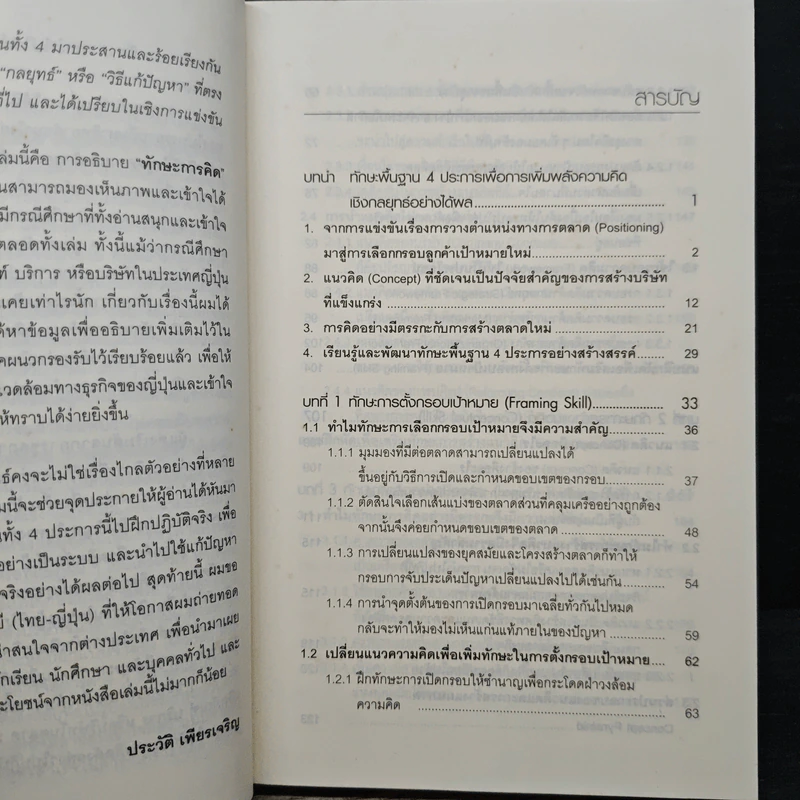 นทั้ง 4 มาประสานและร้อยเรียงกัน
"กลยุทธ์" หรือ "วิธีแก้ปัญหา" ที่ตรง
ไป และได้เปรียบในเชิงการแข่งขัน
ล่มนี้คือ การอธิบาย "ทักษะการคิด"
นสามารถมองเห็นภาพและเข้าใจได้
มีกรณีศึกษาที่ทั้งอ่านสนุกและเข้าใจ
ตลอดทั้งเล่ม ทั้งนี้แม้ว่ากรณีศึกษา
ท์ บริการ หรือบริษัทในประเทศญี่ปุ่น
เคยเท่าไรนัก เกี่ยวกับเรื่องนี้ผมได้
ด้หาข้อมูลเพื่ออธิบายเพิ่มเติมไว้ใน
คผนวกรองรับไว้เรียบร้อยแล้ว เพื่อให้
วดล้อมทางธุรกิจของญี่ปุ่นและเข้าใจ
ห้ทราบได้ง่ายยิ่งขึ้น
ธ์คงจะไม่ใช่เรื่องไกลตัวอย่างที่หลาย
มนี้จะช่วยจุดประกายให้ผู้อ่านได้หันมา
นทั้ง 4 ประการนี้ไปฝึกปฏิบัติจริง เพื่อ
อย่างเป็นระบบ และนำไปใช้แก้ปัญหา
จริงอย่างได้ผลต่อไป สุดท้ายนี้ ผมขอ
(ไทย-ญี่ปุ่น) ที่ให้โอกาสผมถ่ายทอด
น่าสนใจจากต่างประเทศ เพื่อนำมาเผย
นักเรียน นักศึกษา และบุคคลทั่วไป และ
ะโยชน์จากหนังสือเล่มนี้ไม่มากก็น้อย
ประวัติ เพียรเจริญ
สารบัญ
บทนำ ทักษะพื้นฐาน 4 ประการเพื่อการเพิ่มพลังความคิด
เชิงกลยุทธ์อย่างได้ผล 1
1. จากการแข่งขันเรื่องการวางตำแหน่งทางการตลาด (Positioning)
มาสู่การเลือกกรอบลูกค้าเป้าหมายใหม่ 2
2. แนวคิด (Concept) ที่ชัดเจนเป็นปัจจัยสำคัญของการสร้างบริษัท
ที่แข็งแกร่ง 12
3. การคิดอย่างมีตรรกะกับการสร้างตลาดใหม่ 21
4. เรียนรู้และพัฒนาทักษะพื้นฐาน 4 ประการอย่างสร้างสรรค์ 29
บทที่ 1 ทักษะการตั้งกรอบเป้าหมาย (Framing Skill) 33
1.1 ทำไมทักษะการเลือกกรอบเป้าหมายจึงมีความสำคัญ 36
1.1.1 มุมมองที่มีต่อตลาดสามารถเปลี่ยนแปลงได้
ขึ้นอยู่กับวิธีการเปิดและกำหนดขอบเขตของกรอบ 37
1.1.2 ตัดสินใจเลือกเส้นแบ่งของตลาดส่วนที่คลุมเครืออย่างถูกต้อง
จากนั้นจึงค่อยกำหนดขอบเขตของตลาด 48
1.1.3 การเปลี่ยนแปลงของยุคสมัยและโครงสร้างตลาดก็ทำให้
กรอบการจับประเด็นปัญหาเปลี่ยนแปลงไปได้เช่นกัน 54
1.1.4 การนำจุดตั้งต้นของการเปิดกรอบมาเฉลี่ยทั่วกันไปหมด
กลับจะทำให้มองไม่เห็นแก่นแท้ภายในของปัญหา 59
1.2 เปลี่ยนแนวความคิดเพื่อเพิ่มทักษะในการตั้งกรอบเป้าหมาย 62
1.2.1 ฝึกทักษะการเปิดกรอบให้ชำนาญเพื่อกระโดดฝ่าวงล้อม
ความคิด 63